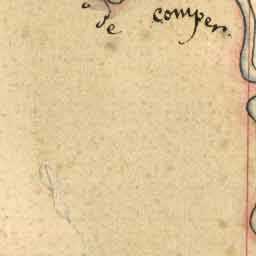 de
comper.